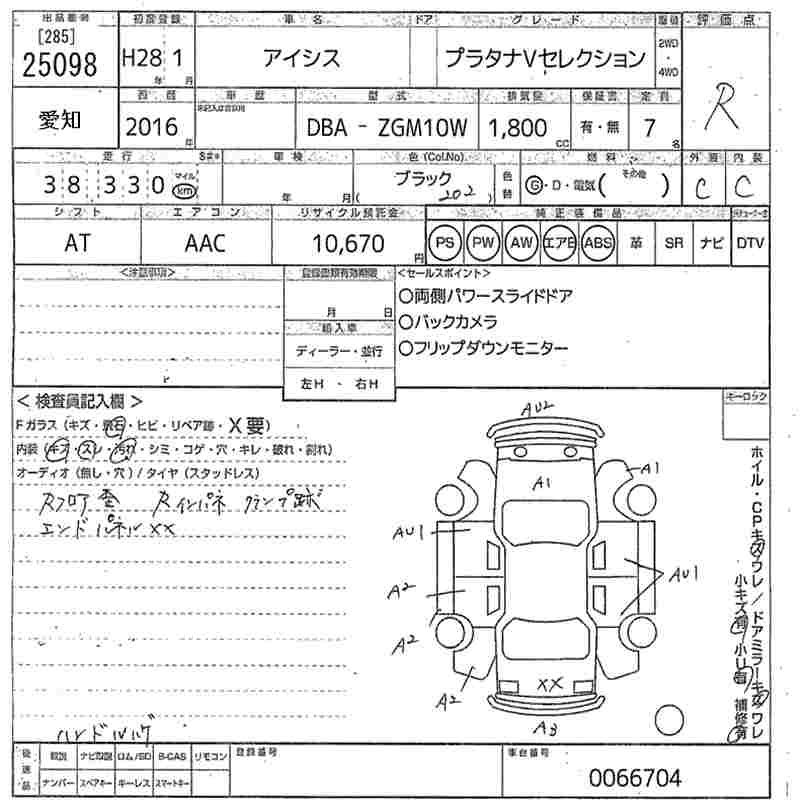 出品番号 初度登録 車名 ドア グレード 駆動 評価点
[285]
25098 H28 1 アイシス プラタナVセレクション 2WD・4WD R
年 月
西暦 車歴 型式 排気量 保証書 定員
愛知 2016年 DBA - ZGM10W 1,800cc 有・無 7名
走行 車検 色(Col.No) 燃料 外装 内装
38,330 マイル km 年 月 ブラック (202) 色替 G・D・電気( その他 ) C C
シフト エアコン リサイクル預託金 純正装備品
AT AAC 10,670円 PS PW AW エアB ABS 革 SR ナビ DTV
<注意事項> 登録書類有効期限 <セールスポイント>
月 日
〇両側パワースライドドア
〇バックカメラ
〇フリップダウンモニター
輸入車
ディーラー・並行
左H ・ 右H
<検査員記入欄>
Fガラス (キズ・飛石・ヒビ・リペア跡・X要)
内装 (キズ・スレ・汚れ・シミ・コゲ・穴・キレ・破れ・割れ)
オーディオ (無し・穴) / タイヤ (スタッドレス)
Rフロア歪 Rインパネ クランプ跡
エンドパネルXX
ハンドルスレ
モーロック
AU2
A1
A1
AU1
AU1
A2
A2
A2
XX
A3
ホイル・CPキズワレ/ドアミラーキズワレ
小キズ有 小U有 補修有
後送品 取説 ナビ取説 ロム/SD B-CAS リモコン 登録番号 車台番号
ナンバー スペアキー キーレス スマートキー 0066704